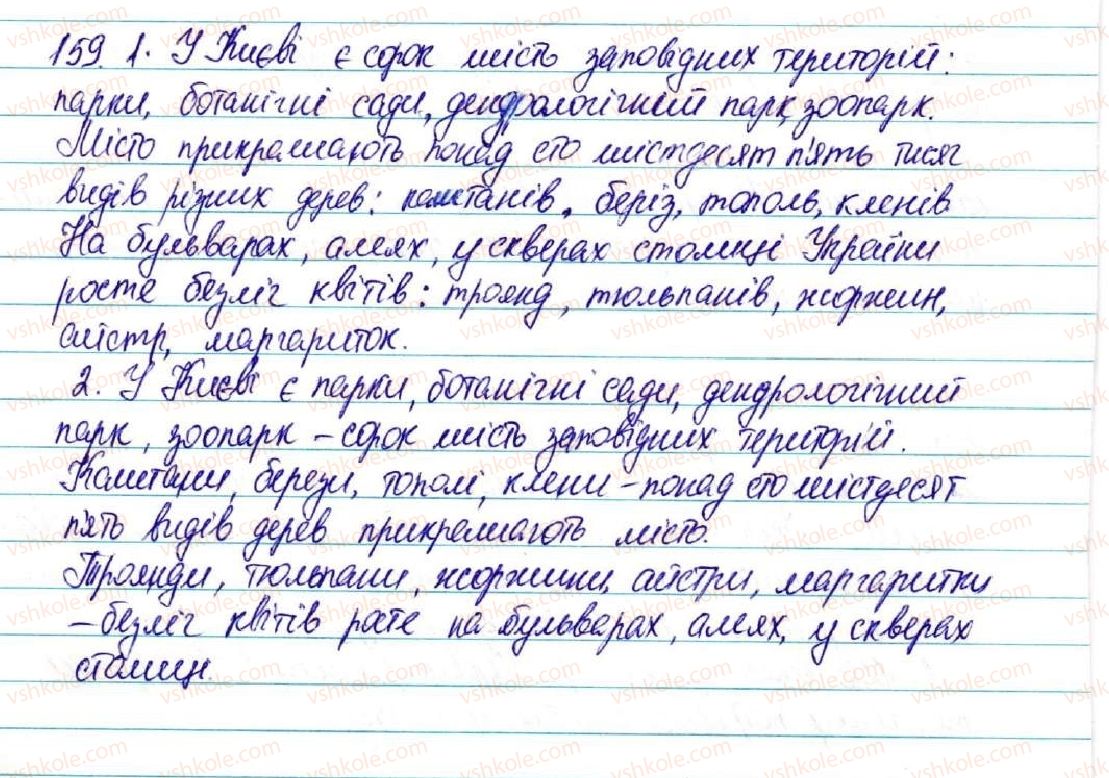 159. 1. У Києві є сорок шість заповідних територій:
парки, ботанічні сади, дендрологічний парк, зоопарк.
Місто прикрашають понад сто шістдесят п'ять тисяч
видів різних дерев: каштанів, беріз, тополь, кленів
На бульварах, алеях, у скверах столиці України
росте безліч квітів: троянд, тюльпанів, жоржин,
айстр, маргариток.
2. У Києві є парки, ботанічні сади, дендрологічний
парк, зоопарк – сорок шість заповідних територій.
Каштани, берези, тополі, клени – понад сто шістдесят
п'ять видів дерев прикрашають місто.
Троянди, тюльпани, жоржини, айстри, маргаритки
– безліч квітів росте на бульварах, алеях, у скверах
столиці.
vshkole.com